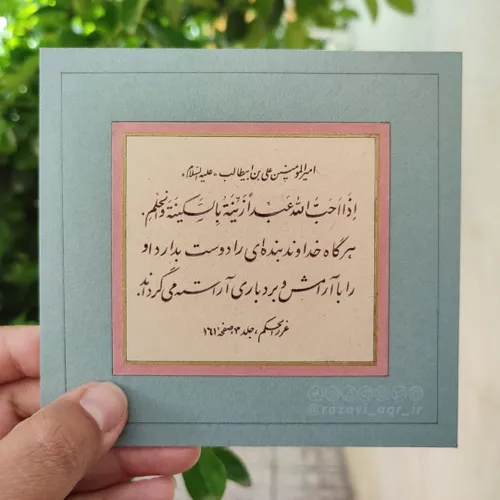 امیرالمؤمنین علی بن ابیطالب «علیه السلام»
اِذَا اَحَبَّ اللهُ عَبداً زَیَّنَهُ بِالسَّکینَةِ وَالْحِلمِ.
هرگاه خداوند بنده‌ای را دوست بدارد او
را با آرامش و بردباری آراسته می‌گرداند
غررالحکم، جلد ۳، صفحه ۱۶۱
@razavi_aqr_ir